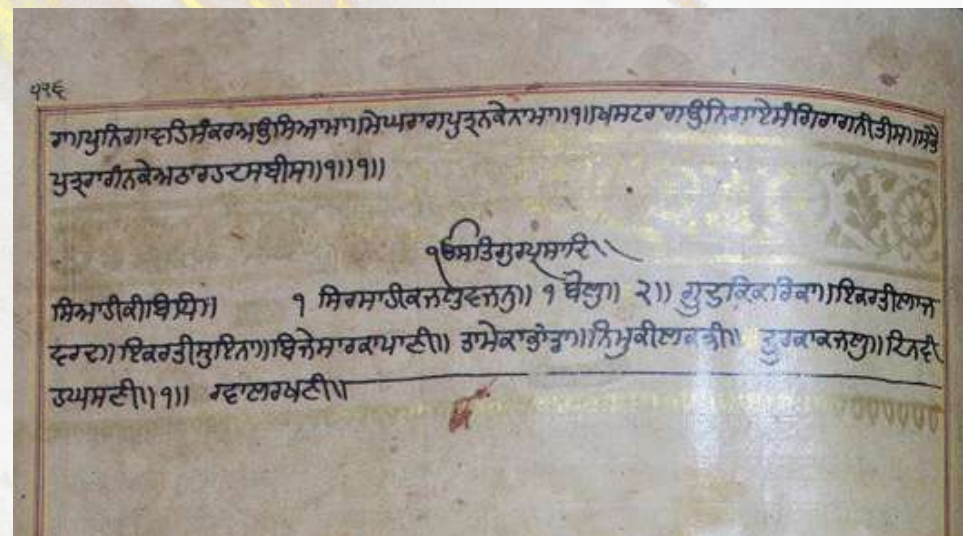 ੫੧੬
ਗਾ॥ਪੁਨਿਗਾਵਹਿਸੰਕਰਅਉਸਿਆਮਾ॥ਮੇਘਰਾਗਪੁਤ੍ਰਨਕੇਨਾਮਾ॥੧॥ਖਸਟਰਾਗਉਨਿਗਾਏਸੰਗਿਰਾਗਨੀਤੀਸ॥ਸਭੈ
ਪੁਤ੍ਰਰਾਗੰਨਕੇਅਠਾਰਹਦਸਬੀਸ॥੧॥੧॥
ੴਸਤਿਗੁਰਪ੍ਰਸਾਦਿ॥
ਸਿਆਹੀਕੀਬਿਧਿ॥ ੧ ਸਿਰਸਾਹੀਕਜਲੁ ੧ ਬੋਲੁ॥ ੨॥ ਗੂੰਦੁਕਿਕਰਿਕਾ॥ਇਕਰਤੀਲਾਜ
ਵਰਦ॥ਇਕਰਤੀਸੁਇਨਾ॥ਬਿਜੇਸਾਰਕਾਪਾਣੀ॥ ਤਾਮੇਕਾਭਾਂਡਾ॥ਨਿਮੁਕੀਲਕੜੀ॥ ਦਿਨਵੀ
ਹਘਸਣੀ॥੧॥ ਰਵਾਲਰਖਣੀ॥